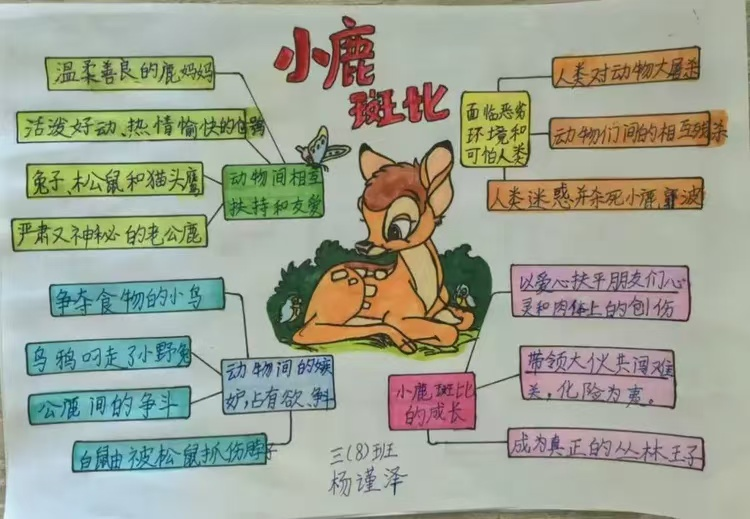 小鹿
斑比
温柔善良的鹿妈妈
活泼好动、热情愉快的
兔子、松鼠和猫头鹰
严肃又神秘的老公鹿
动物间相互
扶持和友爱
面临恶劣
环境和
可怕人类
人类对动物大屠杀
动物们间的相互残杀
人类迷惑并杀死小鹿 波
争夺食物的小鸟
乌鸦叼走了小野兔
公鹿间的争斗
白鼬被松鼠抓伤脖子
动物间的嫉
妒,占有欲、争斗
小鹿斑比
的成长
以爱心扶平朋友们心
灵和肉体上的创伤
带领大伙共闯难
关,化险为夷。
成为真正的丛林王子
三(8)班
杨谨泽